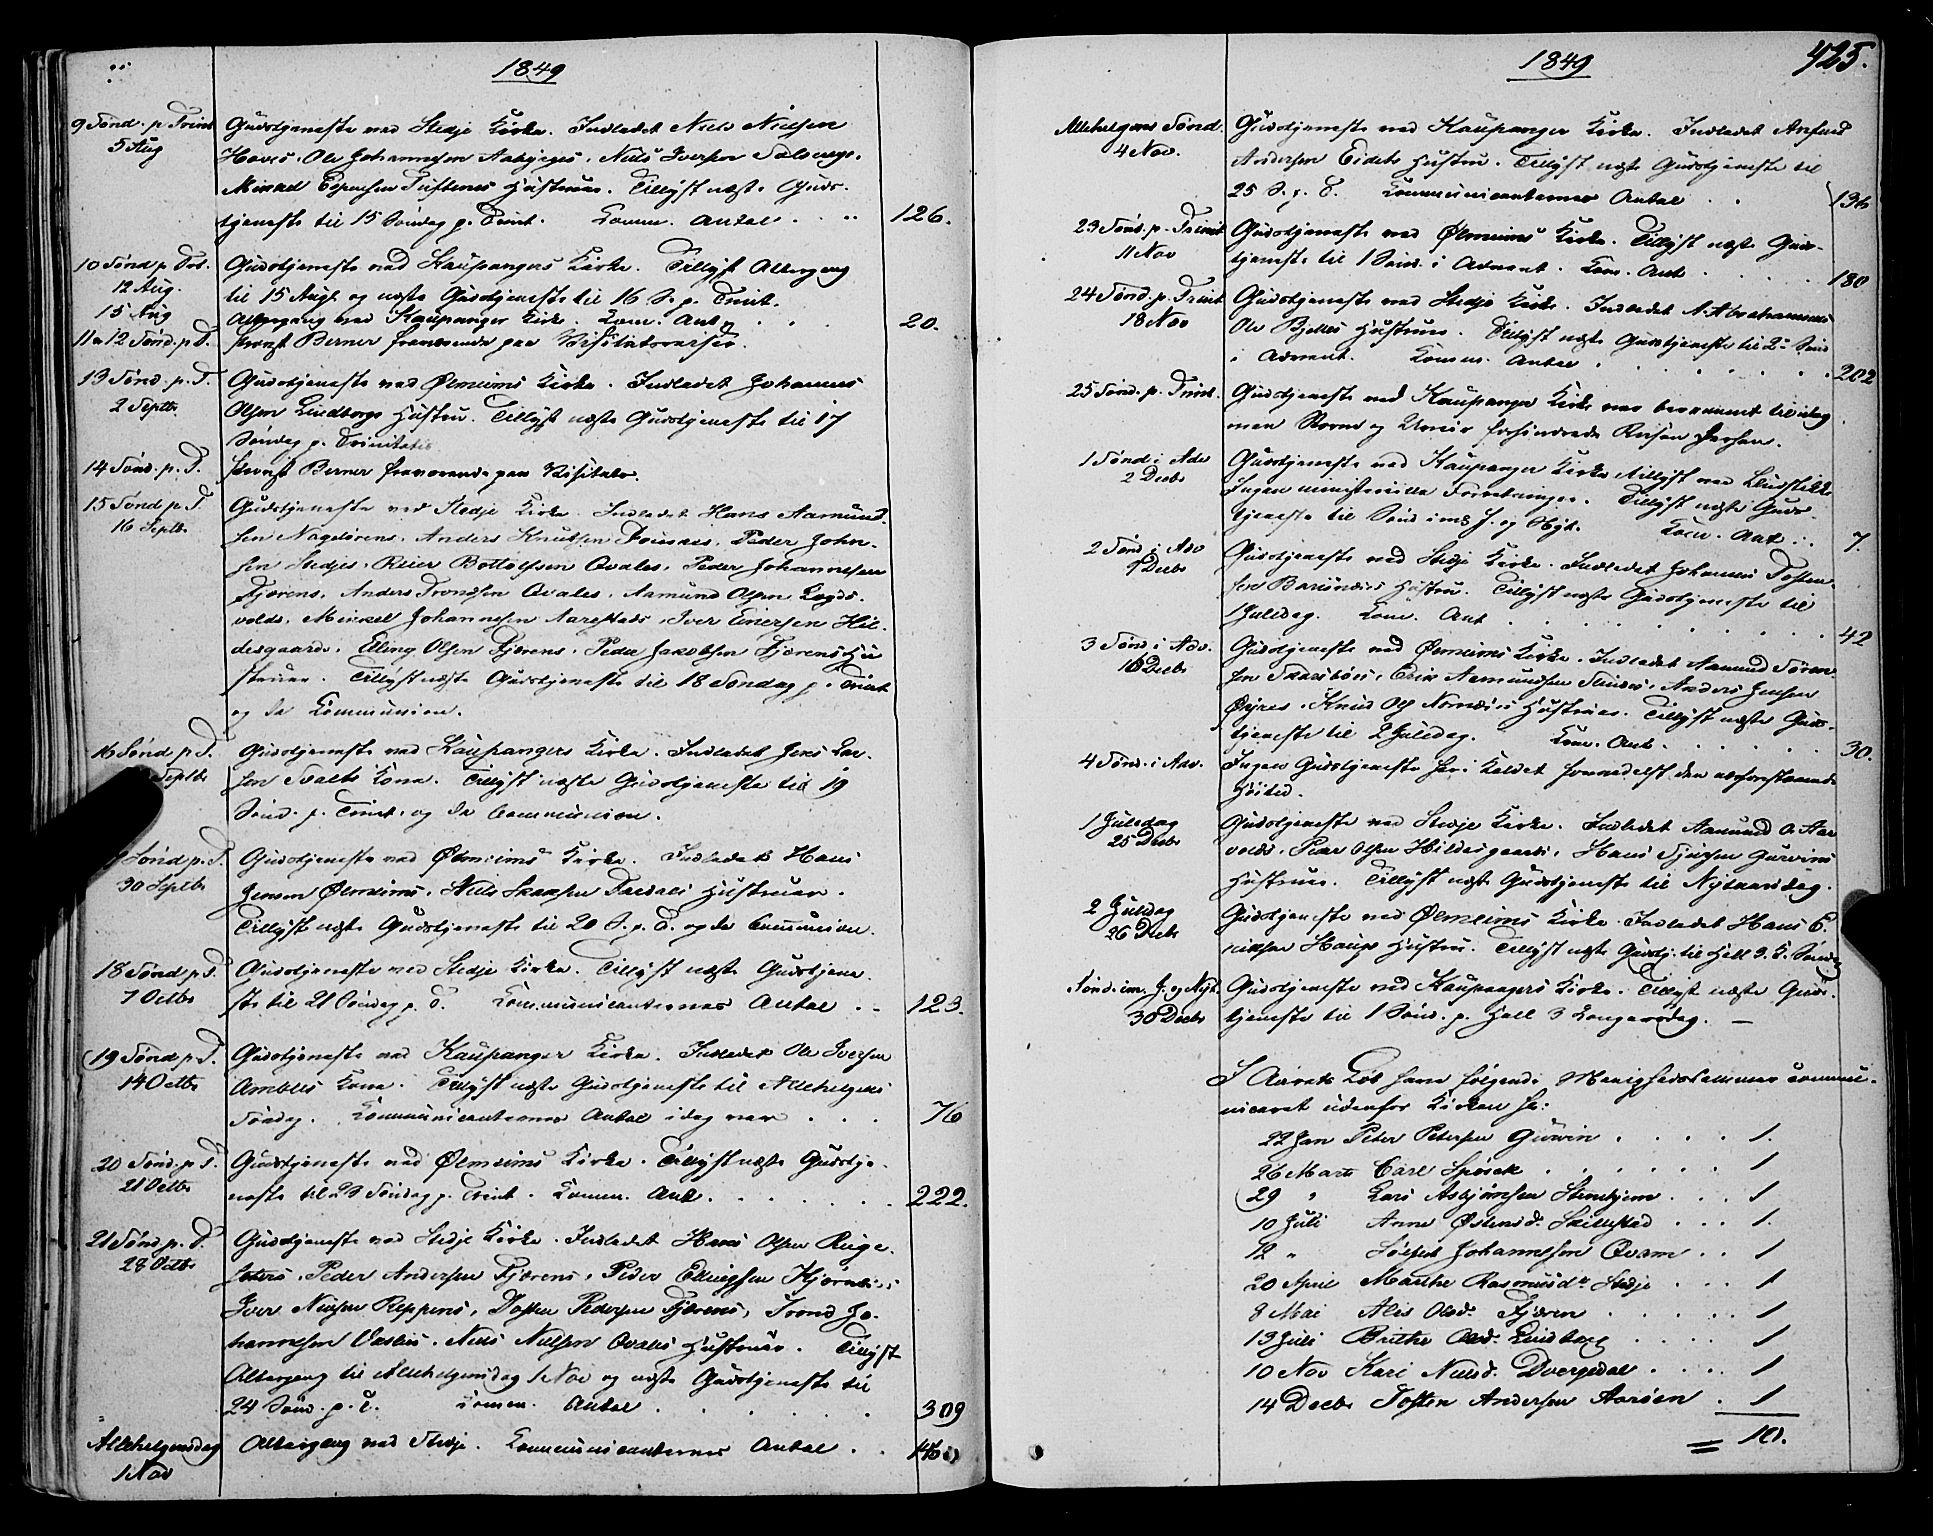 1849
9 Sönd. p Trinit
5 Aug
Gudstjeneste ved Stedje Kirke. Indledet Niels Nielsen
Hoves, Ole Johannesen Aabjeges, Niels Iversen
Hustruer. Tillyst næste Guds-
tjeneste til 15 Söndag p. Trinit. Comm. Antal . . 126.
10 Sönd p Trt.
12 Aug.
Gudstjeneste ved Kaupangers Kirke. Tillyst Altergang
til 15 Augt og næste Gudstjeneste til 16 S. p. Trinit.
15 Aug
Altergang ved Kaupanger Kirke. Kom. Ant . . . 20.
11 o 12 Sönd. p T.
Provst Berner fraværende paa Visitatsreiser.
13 Sönd. p. T.
2 Septbr
Gudstjeneste ved Ølmeims Kirke. Indledet Johannes
Olsen Lindborgs Hustru. Tillyst næste Gudstjeneste til 17
Söndag p. Trinitatis
14 Sönd. p. T.
Provst Berner fraværende paa Visitatser.
15 Sönd p. T.
16 Septbr
Gudstjeneste ved Stedje Kirke. Indledet Hans Aamund-
sen Nagelörens, Anders Knutsen, Peder John-
sen Stedjes, Reier Bottolfsen Qvales, Peder Johannesen
Fjærens, Anders Trondsen Qvales, Aamund Olsen Logds-
volds, Mickel Johannesen Aarestads, Iver Einersen Hil-
desgaards, Elling Olsen Fjærens, Peder Jakobsen Fjærens Hu
struer. Tillyst næste Gudstjeneste til 18 Söndag p. Trinit
og da Communion.
16 Sönd p T.
Septbr
Gudstjeneste ved Kaupangers Kirke. Indledet Jens Lar-
sen Kone. Tillyst næste Gudstjeneste til 19
Sönd. p. Trinit. og da Communion.
Sönd p. T.
30 Septbr
Gudstjeneste ved Ølmeims Kirke. Indledet Hans
Jensen Ølmeims, Niels Hustruer.
Tillyst næste Gudstjeneste til 20 S. p. T. og da Communion.
18 Sönd p T.
7 Octbr
Gudstjeneste ved Stedje Kirke. Tillyst næste Gudstjene-
ste til 21 Söndag p. T. Communicanternes Antal . . 123.
19 Sönd p. T.
14 Octbr
Gudstjeneste ved Kaupanger Kirke. Indledet Ole Iversen
Ambles Kone. Tillyst næste Gudstjeneste til Allehelgens
Söndag. Communicanternes Antal idag var . . . 76
20 Sönd. p. T.
21 Octbr
Gudstjeneste ved Ølmeims Kirke. Tillyst næste Gudstje-
neste til 23 Söndag p. Trinit. Comm. Ant. . . . 222.
21 Sönd p. T.
28 Octbr
Gudstjeneste ved Stedje Kirke. Indledet Hans Olsen
Peder Andersen Fjærens, Peder Ellingsen
Iver Nielsen Reppens, Tosten Pedersen Fjærens, Trond Jo-
hannesen, Niels Nielsen Qvales Hustruer. Tillyst
Altergang til Allehelgensdag 1 Nov og næste Gudstjeneste til
24 Sönd. p. T. Comm. Antal . . . . 309
Allehelgensdag
1 Nov
Altergang ved Stedje. Communicanternes Antal . .
1849
425.
Allehelgens Sönd.
4 Nov.
Gudstjeneste ved Kaupanger Kirke. Indledet
Andersen Eidets Hustru. Tillyst næste Gudstjeneste til
25 S. p. T. Communicanternes Antal . . 136
23 Sönd. p. Trinit
11 Nov
Gudstjeneste ved Ølmeims Kirke. Tillyst næste Guds-
tjeneste til 1 Sönd. i Advent. Kom. Ant . . . 180
24 Sönd. p. Trinit
18 Nov
Gudstjeneste ved Stedje Kirke. Indledet A. Abrahamsens
Ole Hustruer. Tillyst næste Gudstjeneste til 2 Sönd
i Advent. Comm. Antal . . . 202
25 Sönd. p. Trinit.
Gudstjeneste ved Kaupanger Kirke var berammet til idag
men Storm og Uveir forhindrede Reisen
1 Sönd i Adv
2 Decbr
Gudstjeneste ved Kaupanger Kirke tillyst ved
Ingen ministerielle Forretninger. Tillyst næste Guds-
tjeneste til Sönd imel J. og Nyt. Kom. Ant . . 7.
2 Sönd i Adv
9 Decbr
Gudstjeneste ved Stedje Kirke. Indledet Johannes Tosten-
sen Hustru. Tillyst næste Gudstjeneste til
1 Juledag. Kom. Ant . . . 42
3 Sönd i Adv.
16 Decbr
Gudstjeneste ved Ølmeims Kirke. Indledet Aamund Sören-
sen, Erik Aamundsen, Anders Jensen
Knud Ols. Hustruer. Tillyst næste Guds-
tjeneste til 2 Juledag. Kom. Ant. . . . 30.
4 Sönd. i Adv.
Ingen Gudstjeneste her i Kaldet formedelst den nærforestaaende
Höitid.
1 Juledag
25 Decbr
Gudstjeneste ved Stedje Kirke. Indledet Aamund O. Aar
volds, Peder Olsen Hildesgaards, Hans
Hustruer. Tillyst næste Gudstjeneste til Nytaarsdag.
2 Juledag
26 Decbr
Gudstjeneste ved Ølmeims Kirke. Indledet Hans E-
Hauge Hustru. Tillyst næste Gudstj. til Hell 3. K. Söndag
Sönd. im. J. og Nyt.
30 Decbr
Gudstjeneste ved Kaupangers Kirke. Tillyst næste Guds-
tjeneste til 1 Sönd. p. Hell 3 Kongersdag. —
I Aarets Löb have fölgende Menighedslemmer commu-
niceret udenfor Kirken se:
22 Jan Peter Petersen Gurvin . . . . 1.
26 Marts Carl . . . . . 1
29 " Lars Asbjörnsen Stenehjem . . . 1
10 Juli Anne Østensd. Skillestad . . . 1.
12 " Johannesson Qvam . . 1
20 April Marthe Rasmusdr Stedje . . . 1
8 Mai Alis Olsd. Fjæren . . . . 1
13 Juli Brithe Olsd. Lindborg . . . . 1
10 Nov Kari Nielsd. Dvergedal . . . . 1
14 Decbr Tosten Andersen Aaröen . 1
= 10.